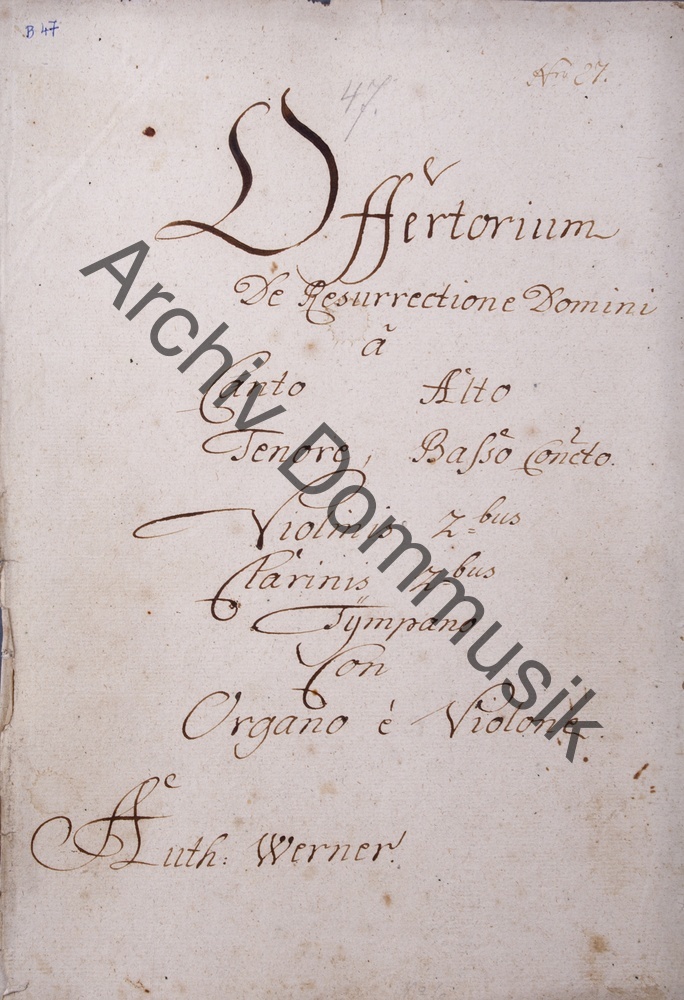 B 47
Nro 87.
47.
Offertorium
De Resurrectione Domini
â
Canto Alto
Tenore, Basso Concto.
Violinis 2.bus
Clarinis 2.bus
Tÿmpano
Con
Organo è Violone
Auth: Werner.
Archiv Dommusik